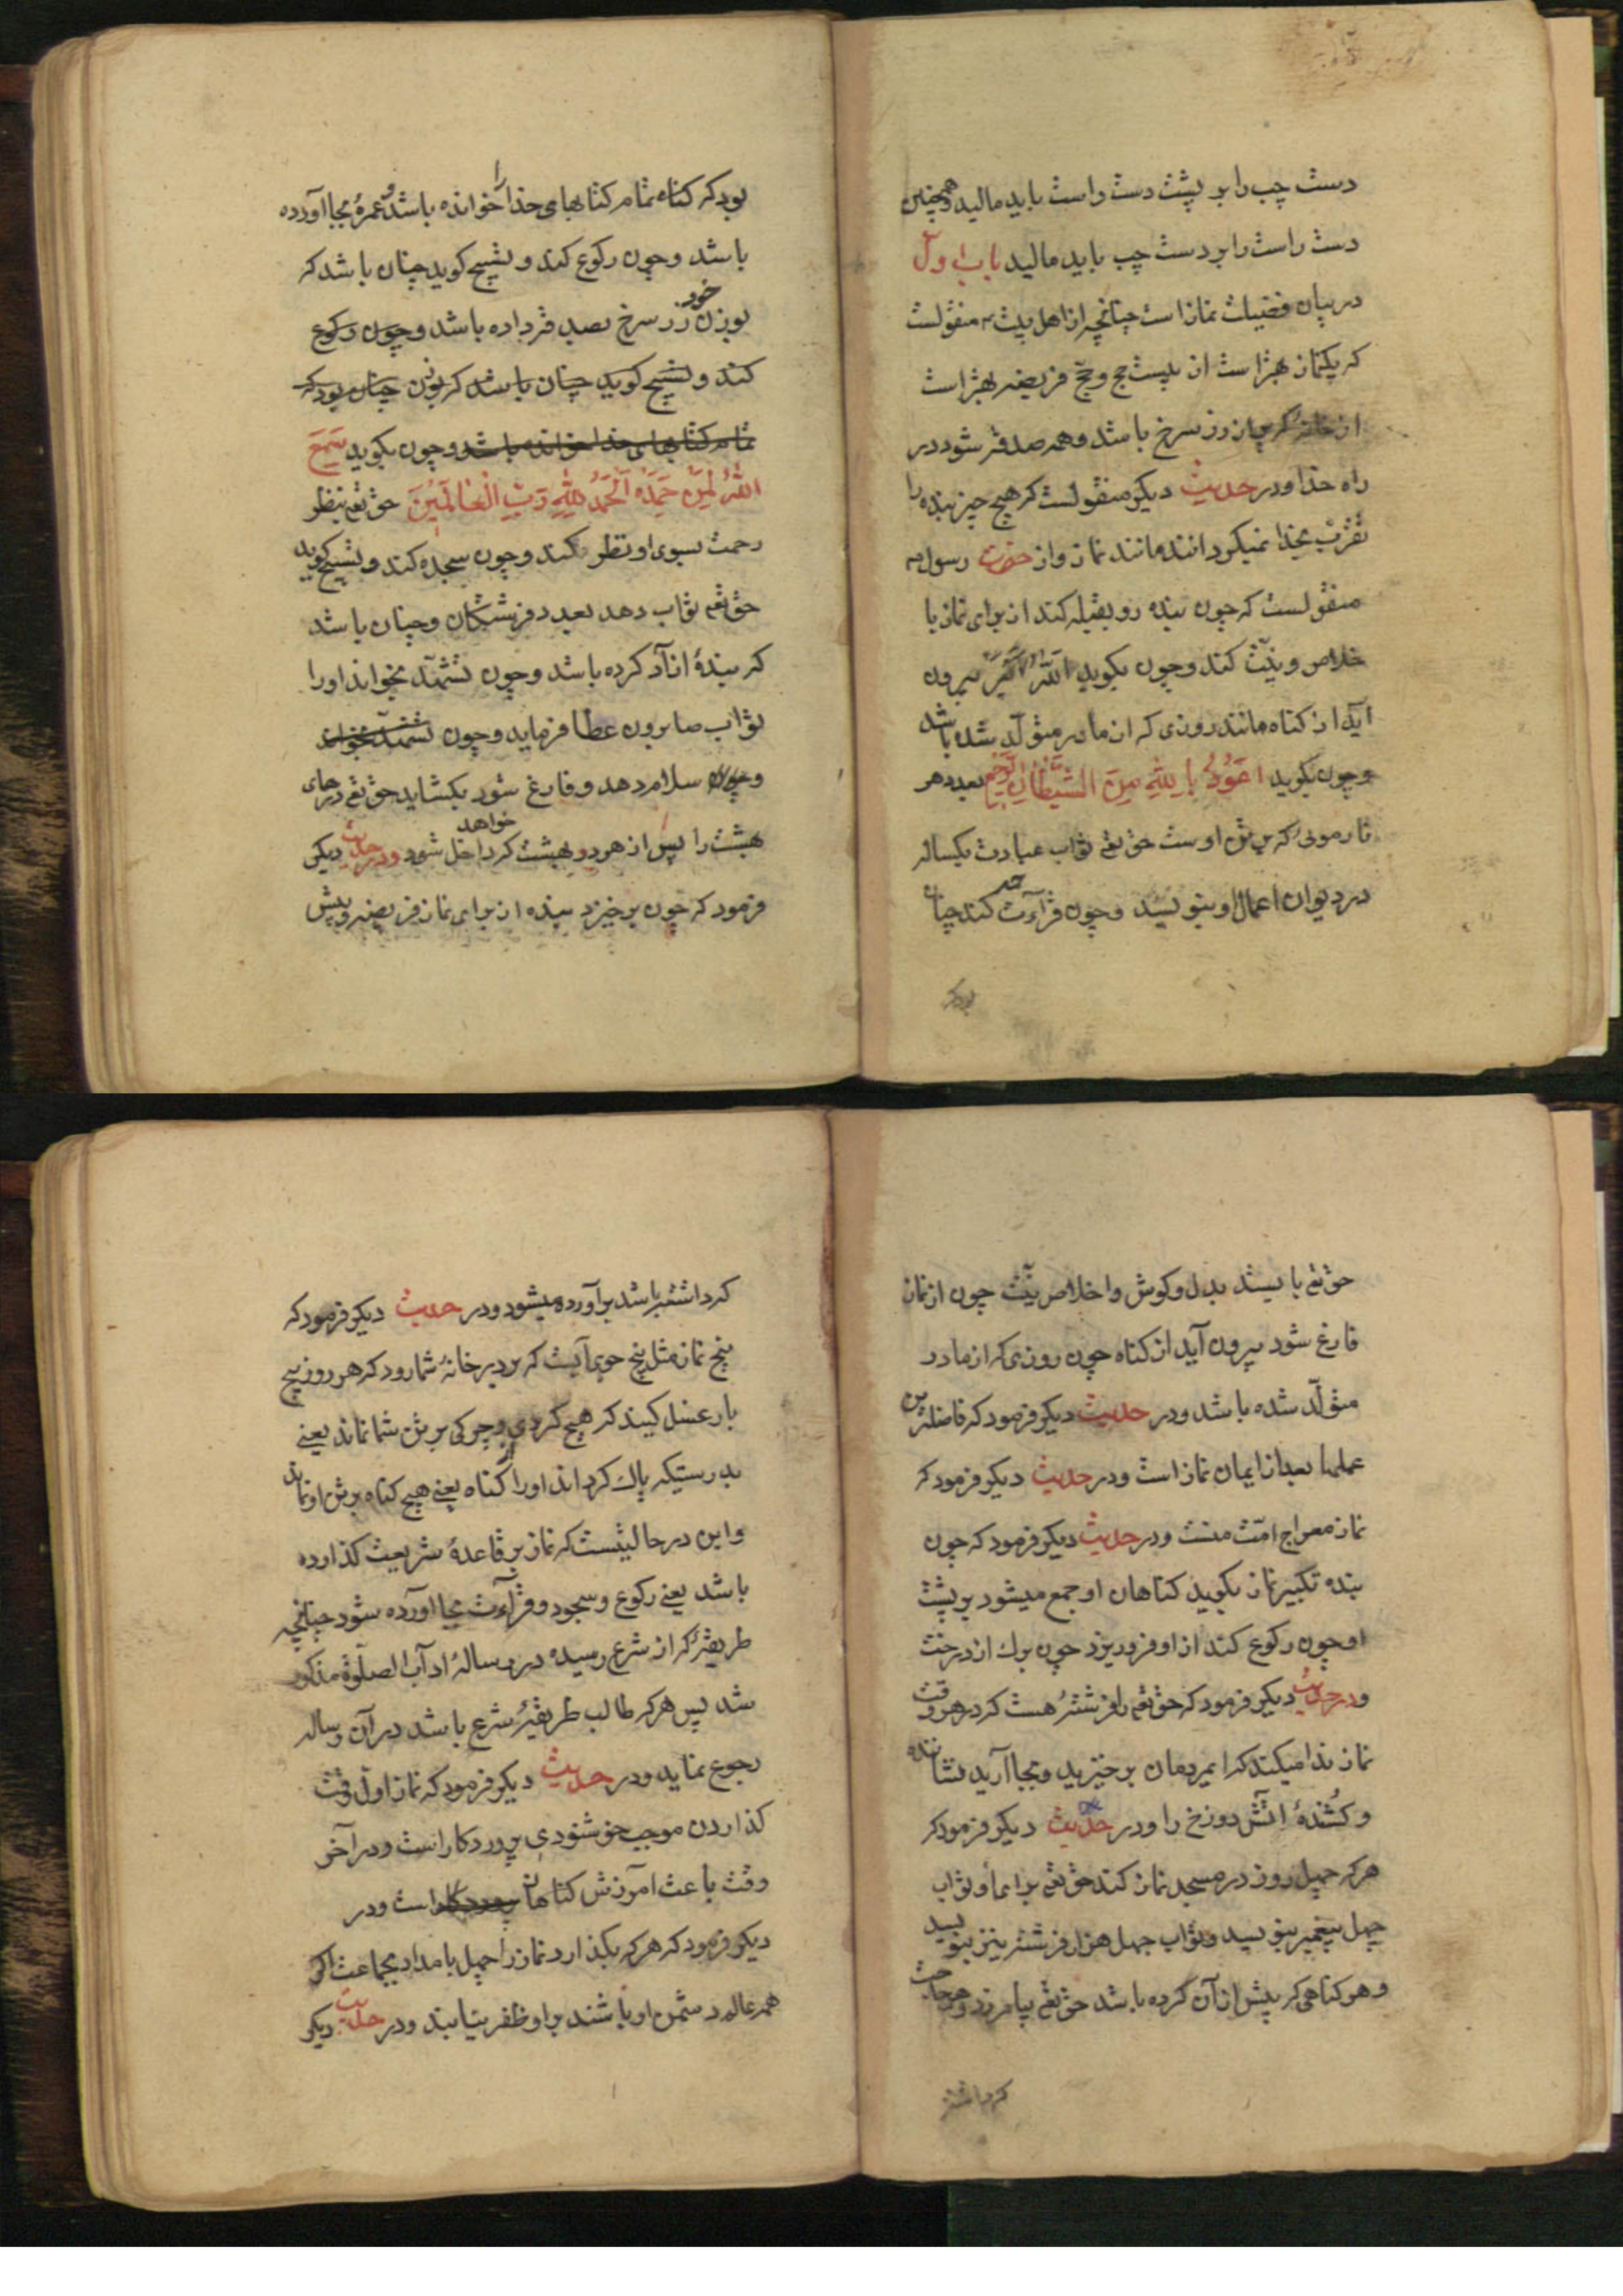 دست چپ را بر پشت دست راست باید مالید و همچنین
دست راست را بر دست چپ باید مالید باب اول
در بیان فضیلت نماز است چنانچه از اهل بیت ع منقولست
که یکنماز بهتر است از بیست حج و حج فریضه بهتر است
از خانه که پر از زر سرخ باشد و همه صدقه شود در
راه خدا و در حدیث دیگر منقولست که هیچ چیز بنده را
تقرب بخدا نمیگرداند مانند نماز و از حضرت رسول ص
منقولست که چون بنده رو بقبله کند از برای نماز با
خلاص و نیت کند و چون بگوید الله اکبر بیرون
آید از گناه مانند روزی که از مادر متولد شده باشد
و چون بگوید اعوذ بالله من الشیطان الرجیم بعدد هر
تار موئی که بر تن اوست حق تع ثواب عبادت یکساله
در دیوان اعمال او بنویسد و چون قرآءت حمد کند چنان
بود که
بود که کتاه تمام کتابهای خدا را خوانده باشد و عمره بجا آورده
باشد و چون رکوع کند و تسبیح گوید چنان باشد که
بوزن خود زر سرخ تصدق داده باشد و چون رکوع
کند و تسبیح گوید چنان باشد که بوزن چنان بود که
تمام کتابهای خدا خوانده باشد و چون بگوید سمع
الله لمن حمده الحمد لله رب العالمین حق تع بنظر
رحمت بسوی او نظر کند و چون سجده کند و تسبیح گوید
حق تع ثواب دهد بعدد فرشتگان و چنان باشد
که بندهٔ آزاد کرده باشد و چون تشهد بخواند او را
ثواب صابرون عطا فرماید و چون تشهد بخواند
و چون سلام دهد و فارغ شود بکشاید حق تع درهای
بهشت را پس از هر در بهشت که خواهد داخل شود و در حدیث دیگر
فرمود که چون برخیزد بنده از برای نماز فریضه و پیش
حق تع بایستد بدل و گوش و اخلاص نیت چون از نماز
فارغ شود بیرون آید از گناه چون روزی که از مادر
متولد شده باشد و در حدیث دیگر فرمود که فاضلترین
عملها بعد از ایمان نماز است و در حدیث دیگر فرمود که
نماز معراج امت منست و در حدیث دیگر فرمود که چون
بنده تکبیر نماز بگوید گناهان او جمع میشود بر پشت
او چون رکوع کند از او فرو ریزد چون برك از درخت
و در حدیث دیگر فرمود که حق تع را فرشتهٔ هست که در هر وقت
نماز ندا میکند که ایمردمان برخیزید و بجا آرید نشاننده
و کُشندهٔ آتش دوزخ را و در حدیث دیگر فرمود که
هر که چهل روز در مسجد نماز کند حق تع برای او ثواب
چهل پیغمبر بنویسد و ثواب چهل هزار فرشته نیز بنویسد
و هر گناهی که پیش از آن کرده باشد حق تع بیامرزد و هر حاجت
که داشته
که داشته باشد برآورده میشود و در حدیث دیگر فرمود که
پنج نماز مثل پنج جوی آبست که بر در خانهٔ شما رود که هر روز پنج
بار غسل کنید که هیچ گردی و چرکی بر تن شما نماند یعنی
بدرستیکه پاك گرداند او را از گناه یعنی هیچ گناه بر تن او نماند
و این در حالیتست که نماز بر قاعدهٔ شریعت گذارده
باشد یعنی رکوع و سجود و قرآءت بجا آورده شود چنانچه
طریقهٔ که از شرع رسیده در رسالهٔ آداب الصلوة مذکور
شد پس هر که طالب طریقهٔ شرع باشد در آن رساله
رجوع نماید و در حدیث دیگر فرمود که نماز اول وقت
گذاردن موجب خوشنودی پروردگار است و در آخر
وقت باعث آمرزش گناهان پروردگار است و در
دیگر فرمود که هر که بگذارد نماز را چهل بامداد بجماعت اگر
همه عالم دشمن او باشند بر او ظفر نیابند و در حدیث دیگر